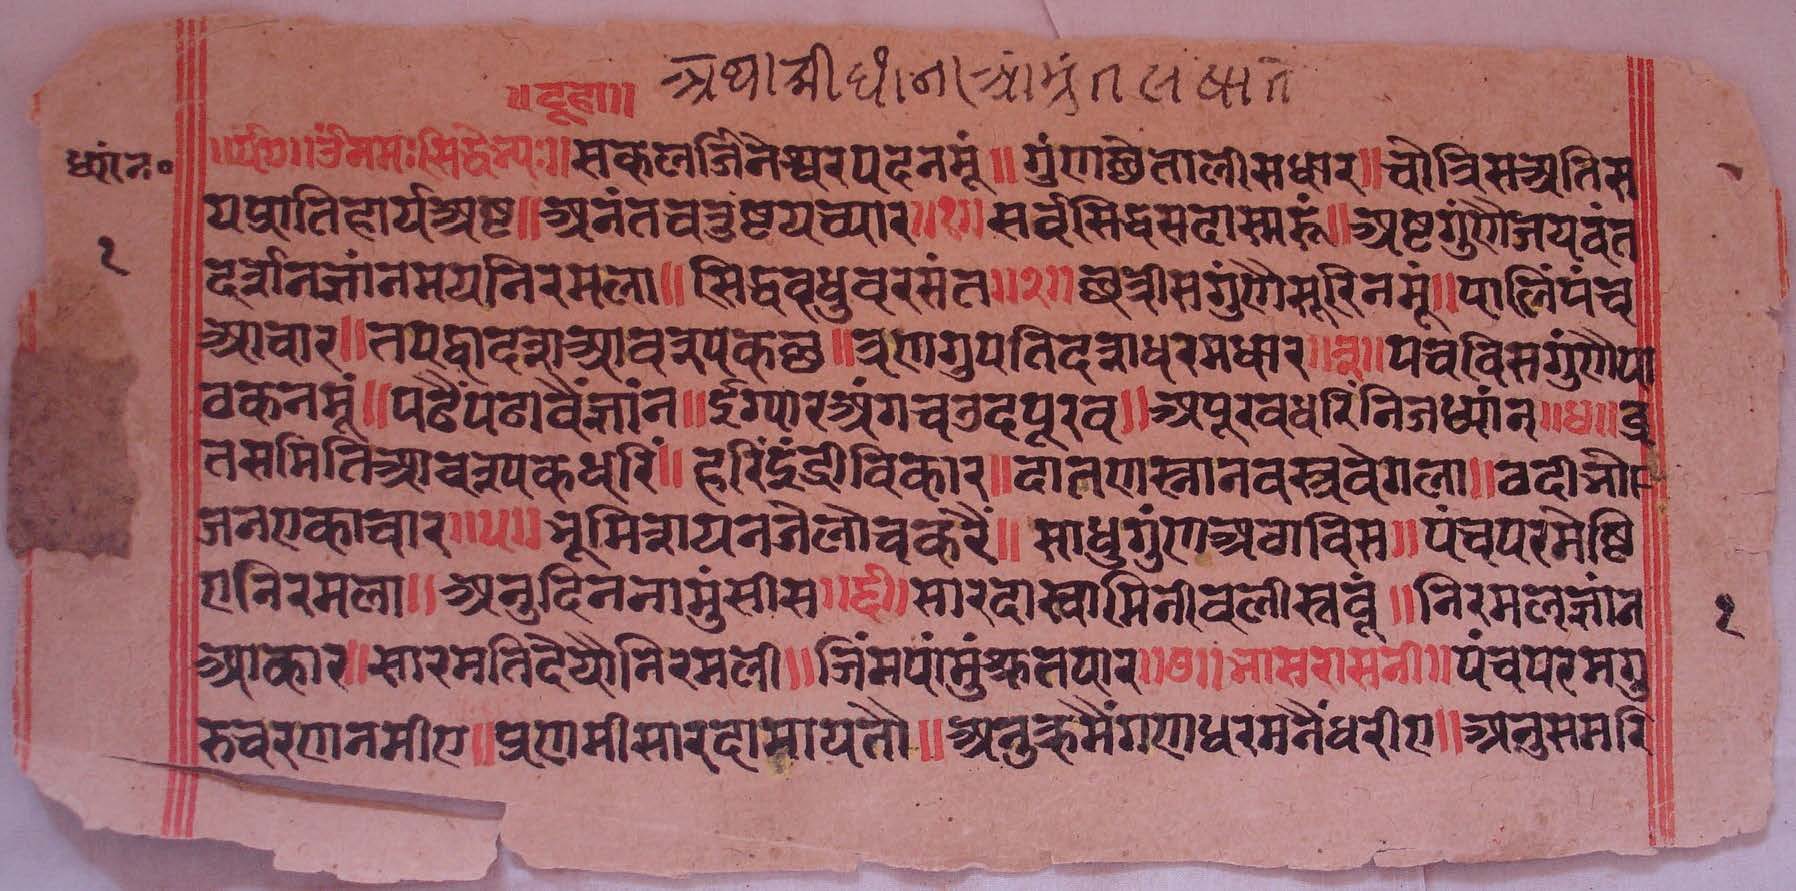 अथाश्रीध्यानामृत लष्यते
॥दूहा॥
॥ॐ नमः सिद्धेभ्यः॥ सकलजिनेश्वरपदनमूं॥ गुंणछैतालीसधार॥ चौत्रिसअतिस
ध्यांन॰
यप्रातिहार्यअष्ट॥ अनंतचतुष्टयच्यार॥१॥ सर्वसिद्धसदास्मरूं॥ अष्टगुंणौजयवंत
१
दर्शनज्ञांनमयनिरमला॥ सिद्धवधुवरसंत॥२॥ छत्रीसगुंणैसूरिनमूं॥ पालिंपंच
आचार॥ तपद्वादशआवश्यकछ॥ त्रणगुपतिदशधरमधार॥३॥ पचविसगुंणौपा
वकनमूं॥ पढैंपढावैंज्ञांन॥ ईग्यारअंगचउदपूरव॥ अपूरवधरिंनिजध्यांन॥४॥ व्र
तसमितिआवश्यकधरिं॥ हरिंइंद्रीविकार॥ दातणस्नानवस्त्रवेगला॥ वदीभो
जनएकाचार॥५॥ भूमिशयनजैलोचकरैं॥ साधुगुंणअठाविस॥ पंचपरमेष्टि
एनिरमला॥ अनुदिननामुंसीस॥६॥ सारदास्वामिनीवलीस्तवूं॥ निरमलज्ञांन
आकार॥ सारमतिदेयौनिरमली॥ जिंमपांमुंश्रुतपार॥७॥ भासरासनी॥ पंचपरमगु
१
रुचरणनमीए॥ प्रणमीसारदामायतौ॥ अनुक्रमैंगणधरमनैंधरीए॥ अनुसमरि